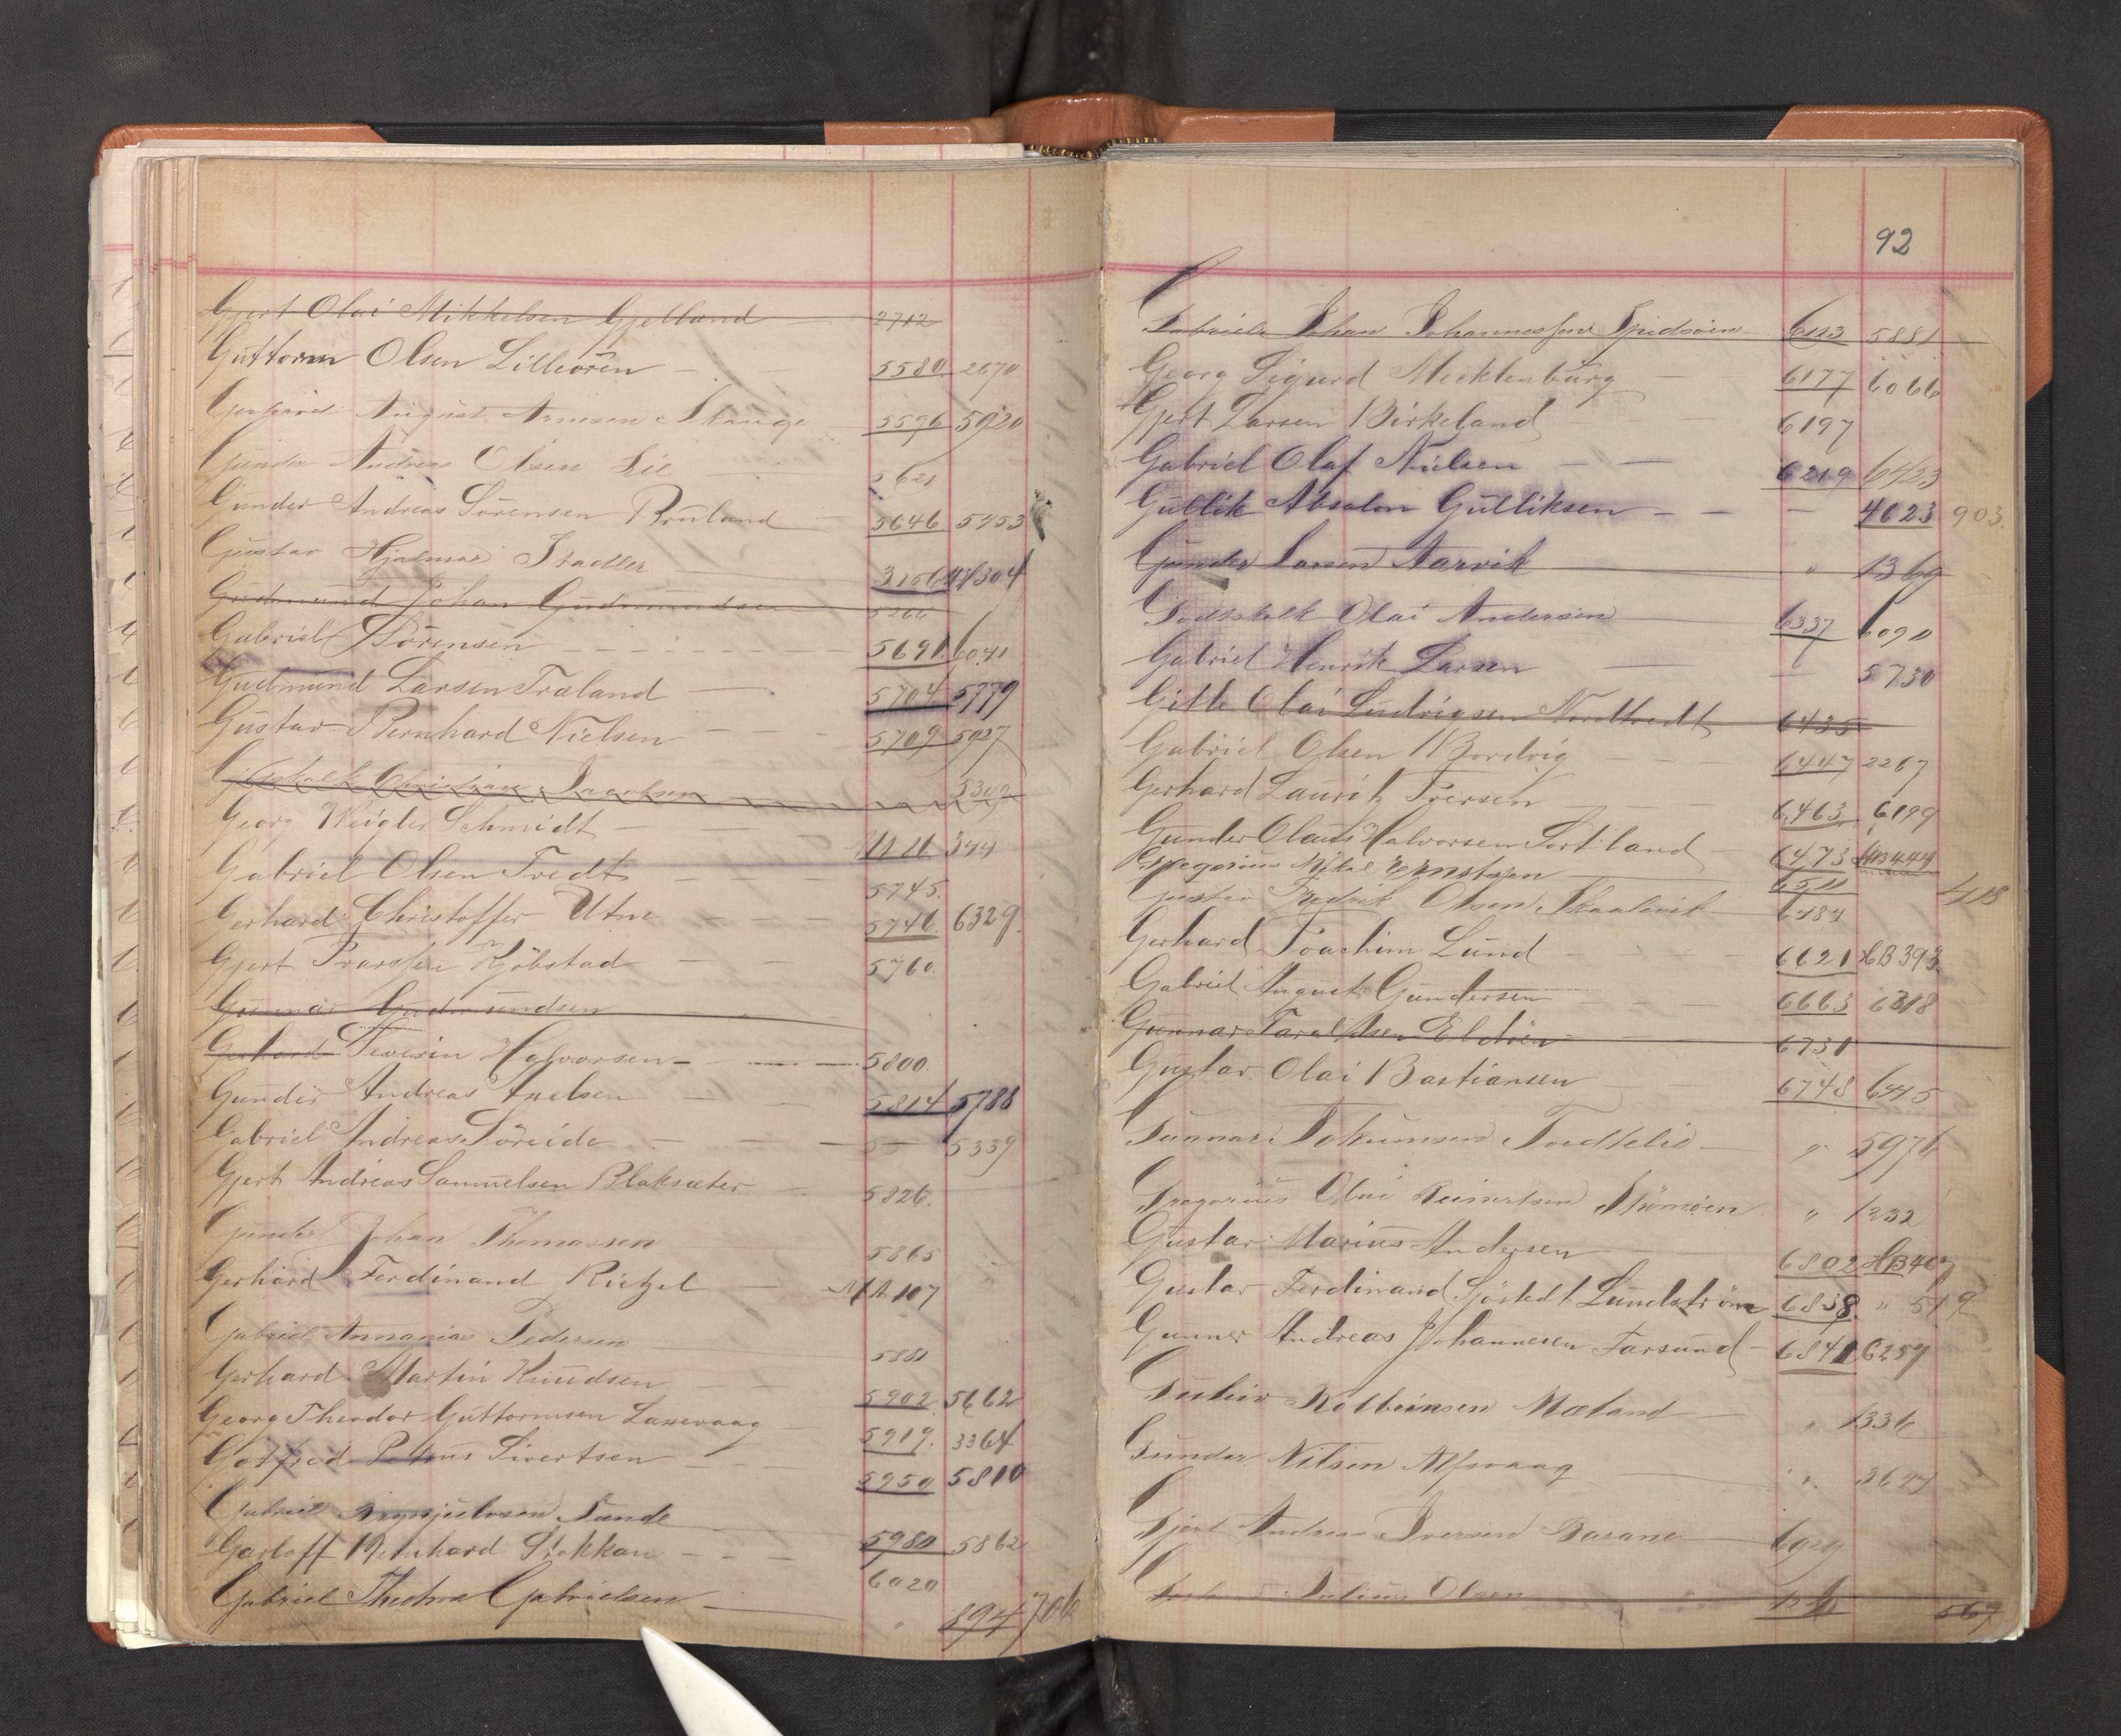 Gjert Olai Mikkelsen Gjelland 2712
Guttorm Olsen Lilleören - - 5580 2670
Gerhard August Arnesen Skauge 5596 5920
Gunder Andreas Olsen Lie 5621
Gunder Andreas Sörensen Bruland 5646 5953
Gustav Hjalmar Stadler 3166
Gudmund Johan Gudmundsen 5266
Gabriel Sörensen - - - - - - - 5691 6041
Gudmund Larsen Træland - 5704 5779
Gustav Bernhard Nielsen - - - 5709 5927
Christian Jacobsen 5309
Georg Weigler Schmidt - - 344
Gabriel Olsen Tvedt - - - 5745.
Gerhard Christoffer Utne - - - 5746. 6329.
Gjert Ivarssen Kjöbstad - - 5760.
Gunnar Gudmundsen
Gerhard Severin Halvorsen - 5800.
Gunder Andreas Axelsen - - 5814 5788
Gabriel Andreas Söreide - - - 5339
Gjert Andreas Samuelsen Blaksæter - 5826.
Gunder Johan Thomassen 5865
Gerhard Ferdinand Rietzel - MA 107
Gabriel Annanias Pedersen 5881
Gerhard Martin Knudsen - - 5902. 5662
Georg Theodor Guttormsen Laxevaag - 5919. 3364
Gotfred Petrus Sivertsen - - - 5950 5810
Gabriel Brynjulvsen Sunde
Garloff Meinhard Stokkan - - - 5980 5862
Gabriel Theodor Gabrielsen - 6020
" 894 706
92
Gabriel Johan Johannessen Spidsöen 6113 5881
Georg Sigurd Mecklenburg - 6177 6066
Gjert Larsen Birkeland - 6197
Gabriel Olaf Nielsen - - 6219 6423
Gullik Absalon Gulliksen - - - 4623 903.
Gunder Larsen Aarvik " 1369
Godtskalk Olai Andersen 6337 6090
Gabriel Henrik Larsen - - 5730
Gitle Olai Ludvigsen Nordtvedt 6435
Gabriel Olsen Bordvig - - - 6447 2267
Gerhard Lauritz Iversen - - - 6463. 6199
Gunder Olaus Halvorsen Sortland - 6473 HB444
Gregorius Mikal Ernstsen 6511
Gustav Fredrik Olsen Skaalevik - 6484 418
Gerhard Joachim Lund - - - 6621 HB 393
Gabriel August Gundersen - - - 6663 6318
Gunnar Taraldsen Eldöen 6731
Gustav Olai Bastiansen 6748 6445
Gunnar Jokumsen Tvedtelid - " 5976
Gregorius Olai Reinertsen Strömöen " 1232
Gustav Marius Andersen 6802 HB 407
Gustav Ferdinand Sjöstedt Lundström 6838. " 519
Gunner Andreas Johannesen Farsund - 6841 6259
Kolbeinsen Mæland - " 1336
Gunder Nilsen Alfsvaag " 3677
Gjert Andreas Iversen Barane 6929
Julius Olsen 567